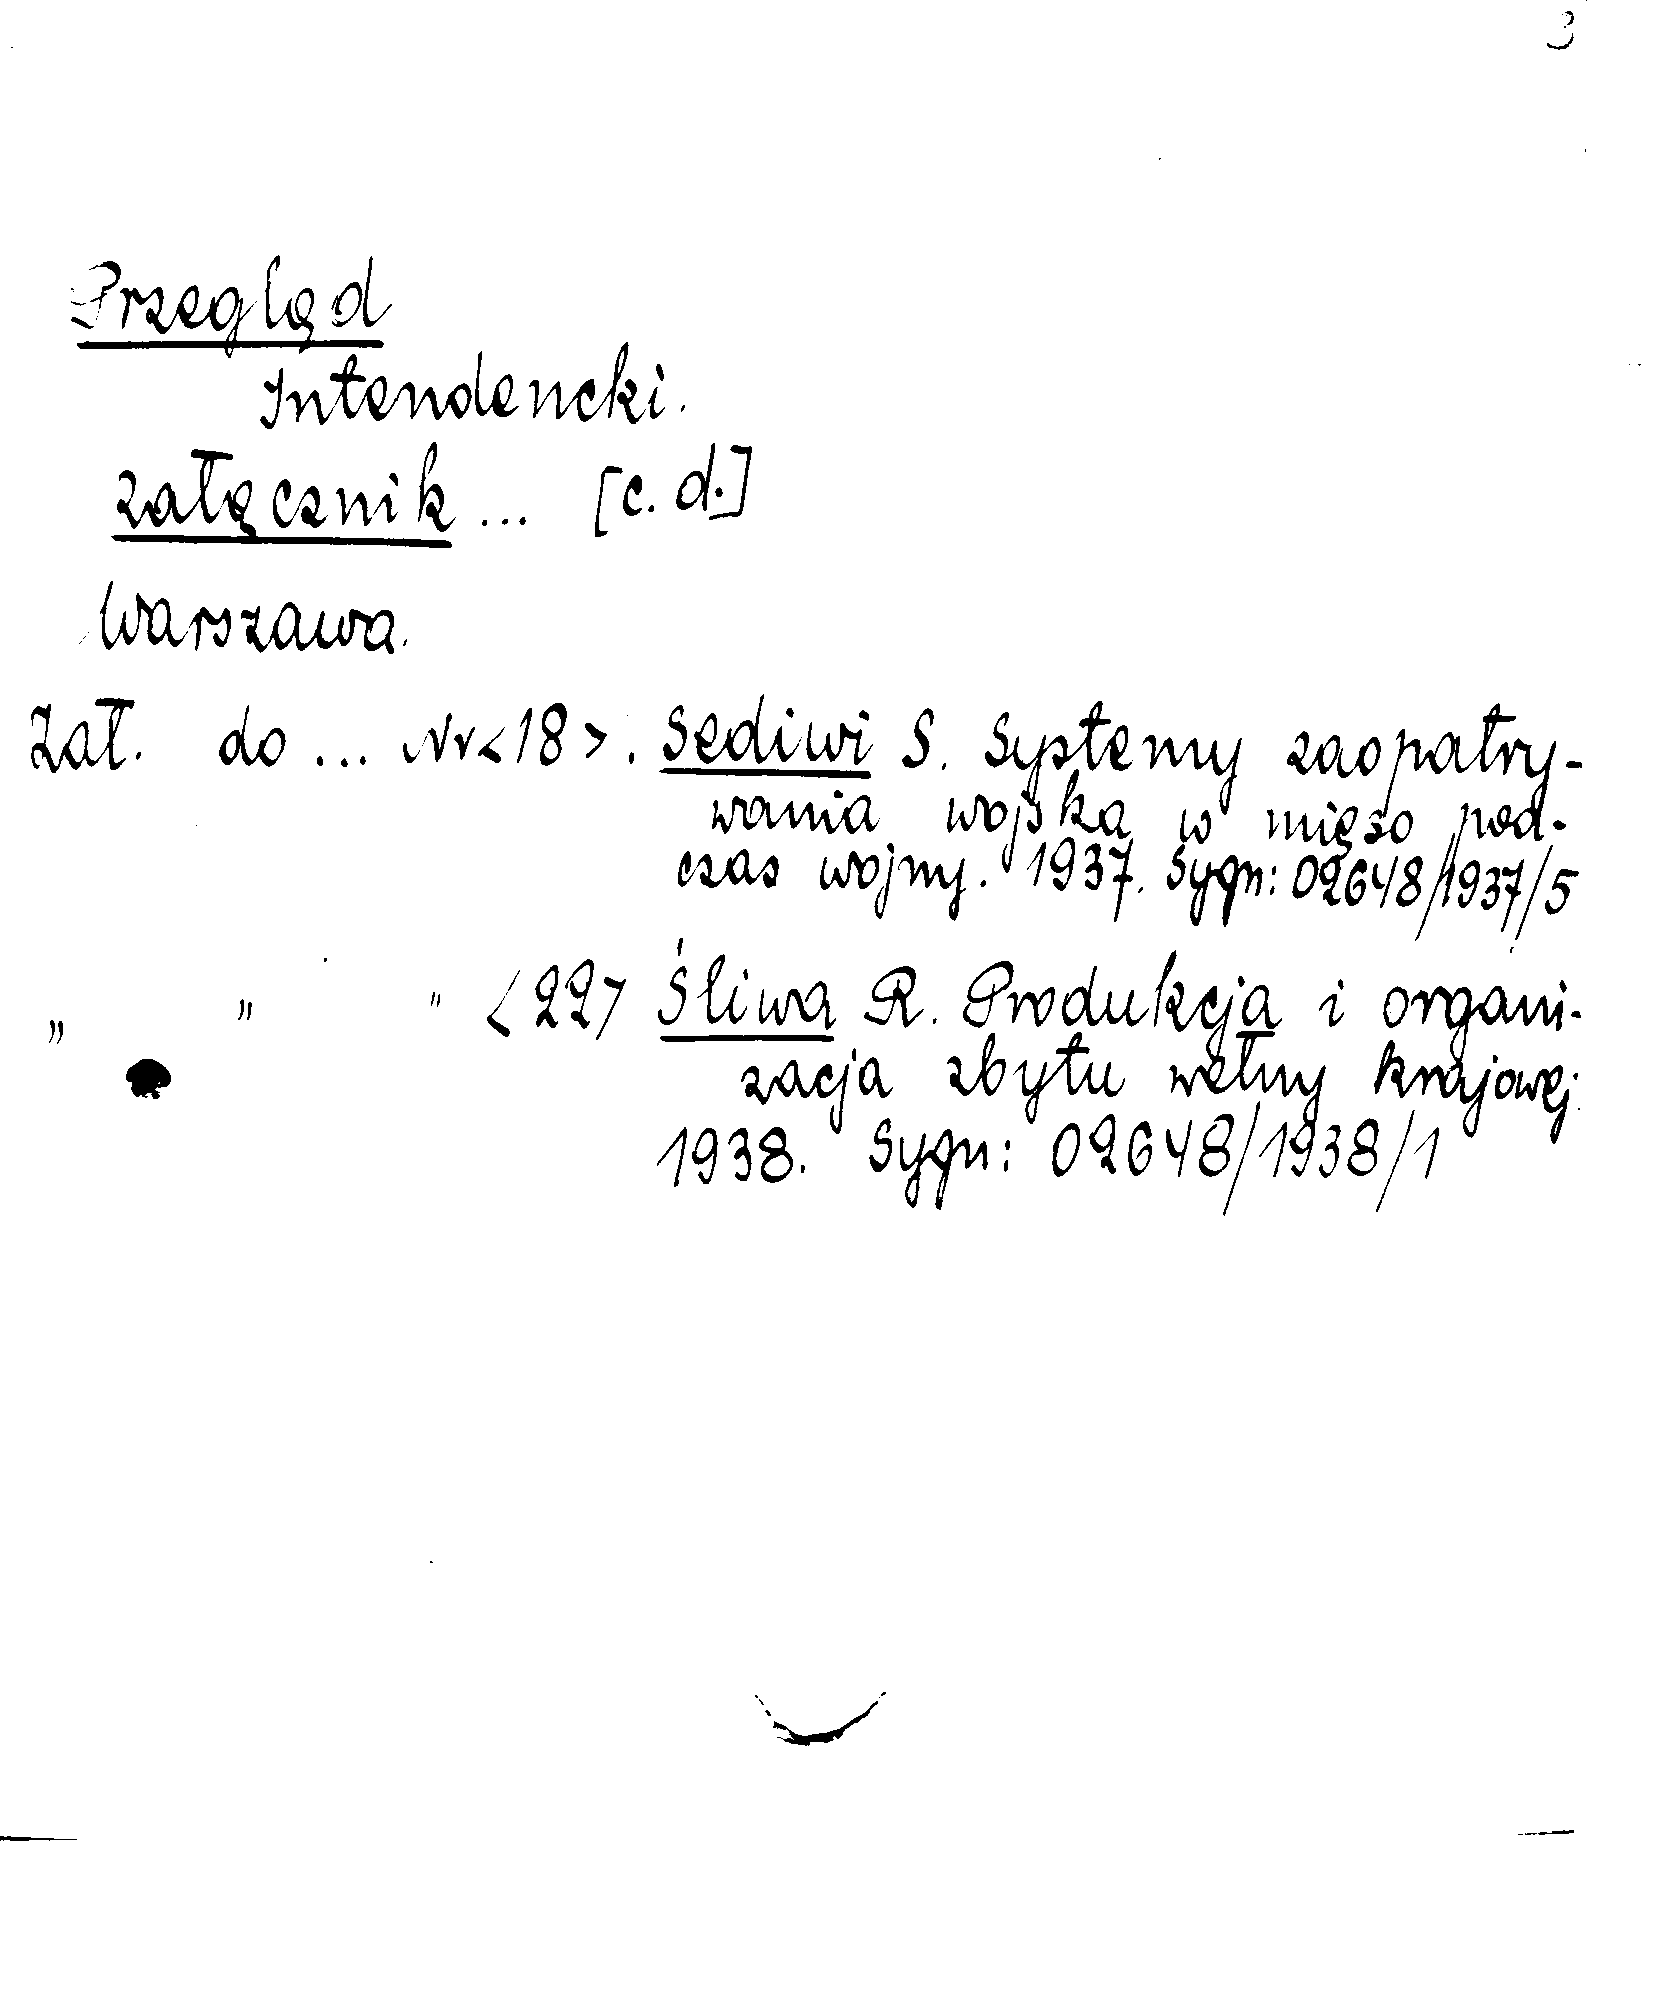 3
Przegląd
Intendencki.
załącznik ... [c. d.]
Warszawa.
Zał. do ... Nr <18>. Sediwi S. Systemy zaopatry-
wania wojska w mięso pod-
czas wojny. 1937. Sygn: 02648/1937/5
„ „ " <22> Śliwa R. Produkcja i organi-
zacja zbytu wełny krajowej.
1938. Sygn: 02648/1938/1